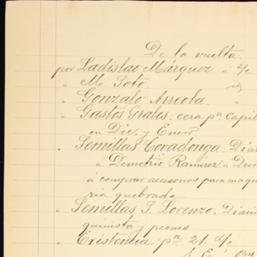 De la vuelta
por Ladislao Márquez á c/c
" M. Soto id
" Gonzalo Arreola "
" Gastos Grales. cera pª Capil
en Dic. y Enero
" Semillas Covadonga. Diam
" Demetrio Ramírez a Dur
á comprar acesorios para maqui
ria quebrada
" Semillas S. Lorenzo. Diam
quimista, peones
" Existencia pª 21. d/c